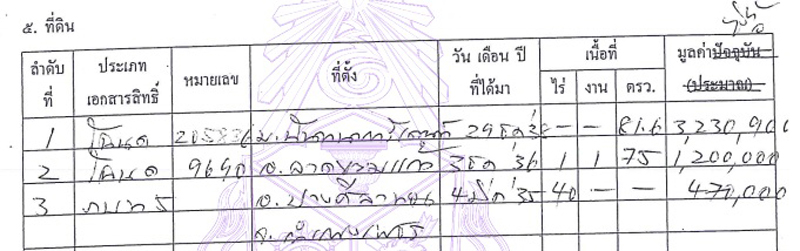 ซื้อ
๕. ที่ดิน
ลำดับที่ ประเภทเอกสารสิทธิ์ หมายเลข ที่ตั้ง วัน เดือน ปี ที่ได้มา เนื้อที่ ไร่ งาน ตรว. มูลค่าปัจจุบัน (ประมาณ)
1 โฉนด 29 – – 81.6 3,230,900
2 โฉนด 9690 อ. ลาดหลุมแก้ว 36 1 1 75 1,200,000
3 ภบท 5 อ. ปางศิลาทอง 35 40 – – 470,000
จ. กำแพงเพชร